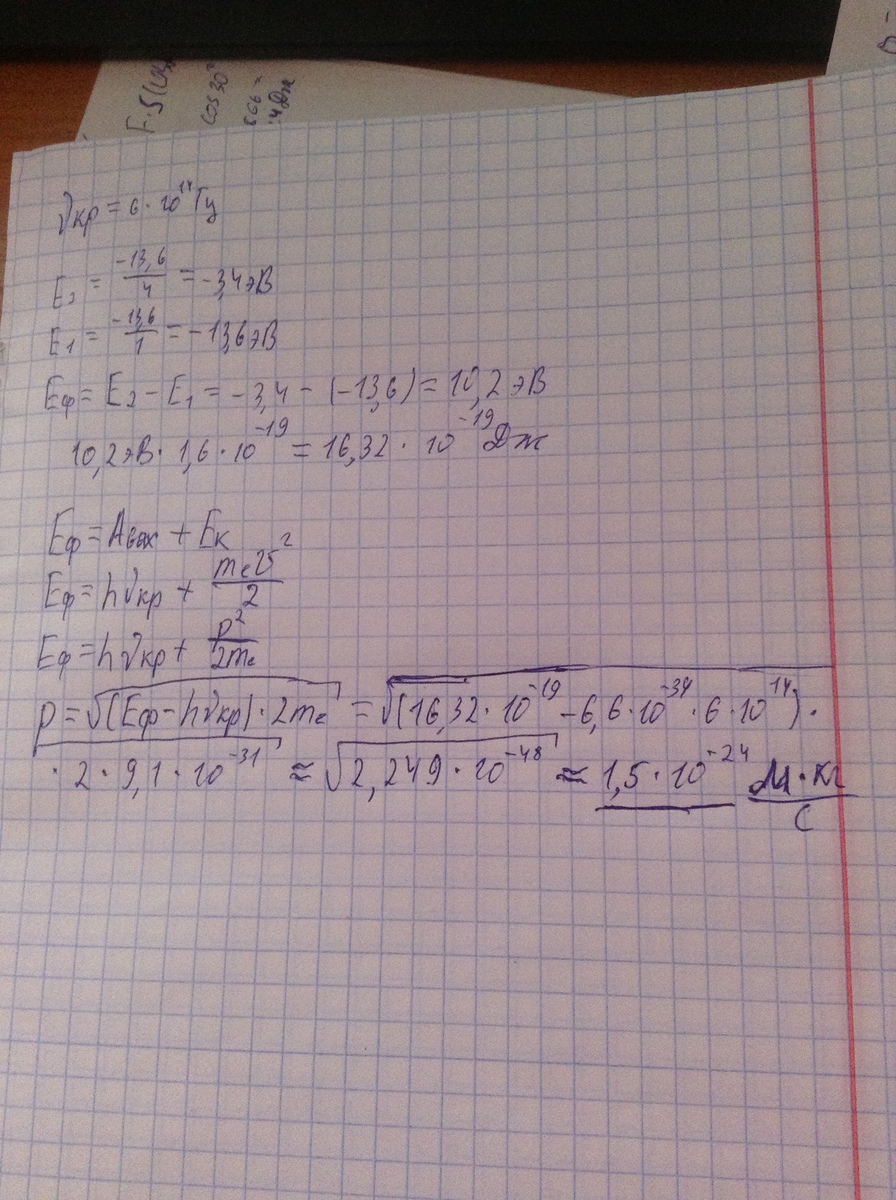 F·S(
cos30°
866 =
4 Дж
νкр = 6 · 10¹⁴ Гц
E₂ = -13,6/4 = -3,4 эВ
E₁ = -13,6/1 = -13,6 эВ
Eф = E₂ - E₁ = -3,4 - (-13,6) = 10,2 эВ
10,2 эВ · 1,6 · 10⁻¹⁹ = 16,32 · 10⁻¹⁹ Дж
Eф = Aвых + Eк
Eф = hνкр + mₑv²/2
Eф = hνкр + p²/2mₑ
p = √(Eф - hνкр) · 2mₑ = √(16,32 · 10⁻¹⁹ - 6,6 · 10⁻³⁴ · 6 · 10¹⁴) ·
· 2 · 9,1 · 10⁻³¹ ≈ √2,249 · 10⁻⁴⁸ ≈ 1,5 · 10⁻²⁴ м·кг/с